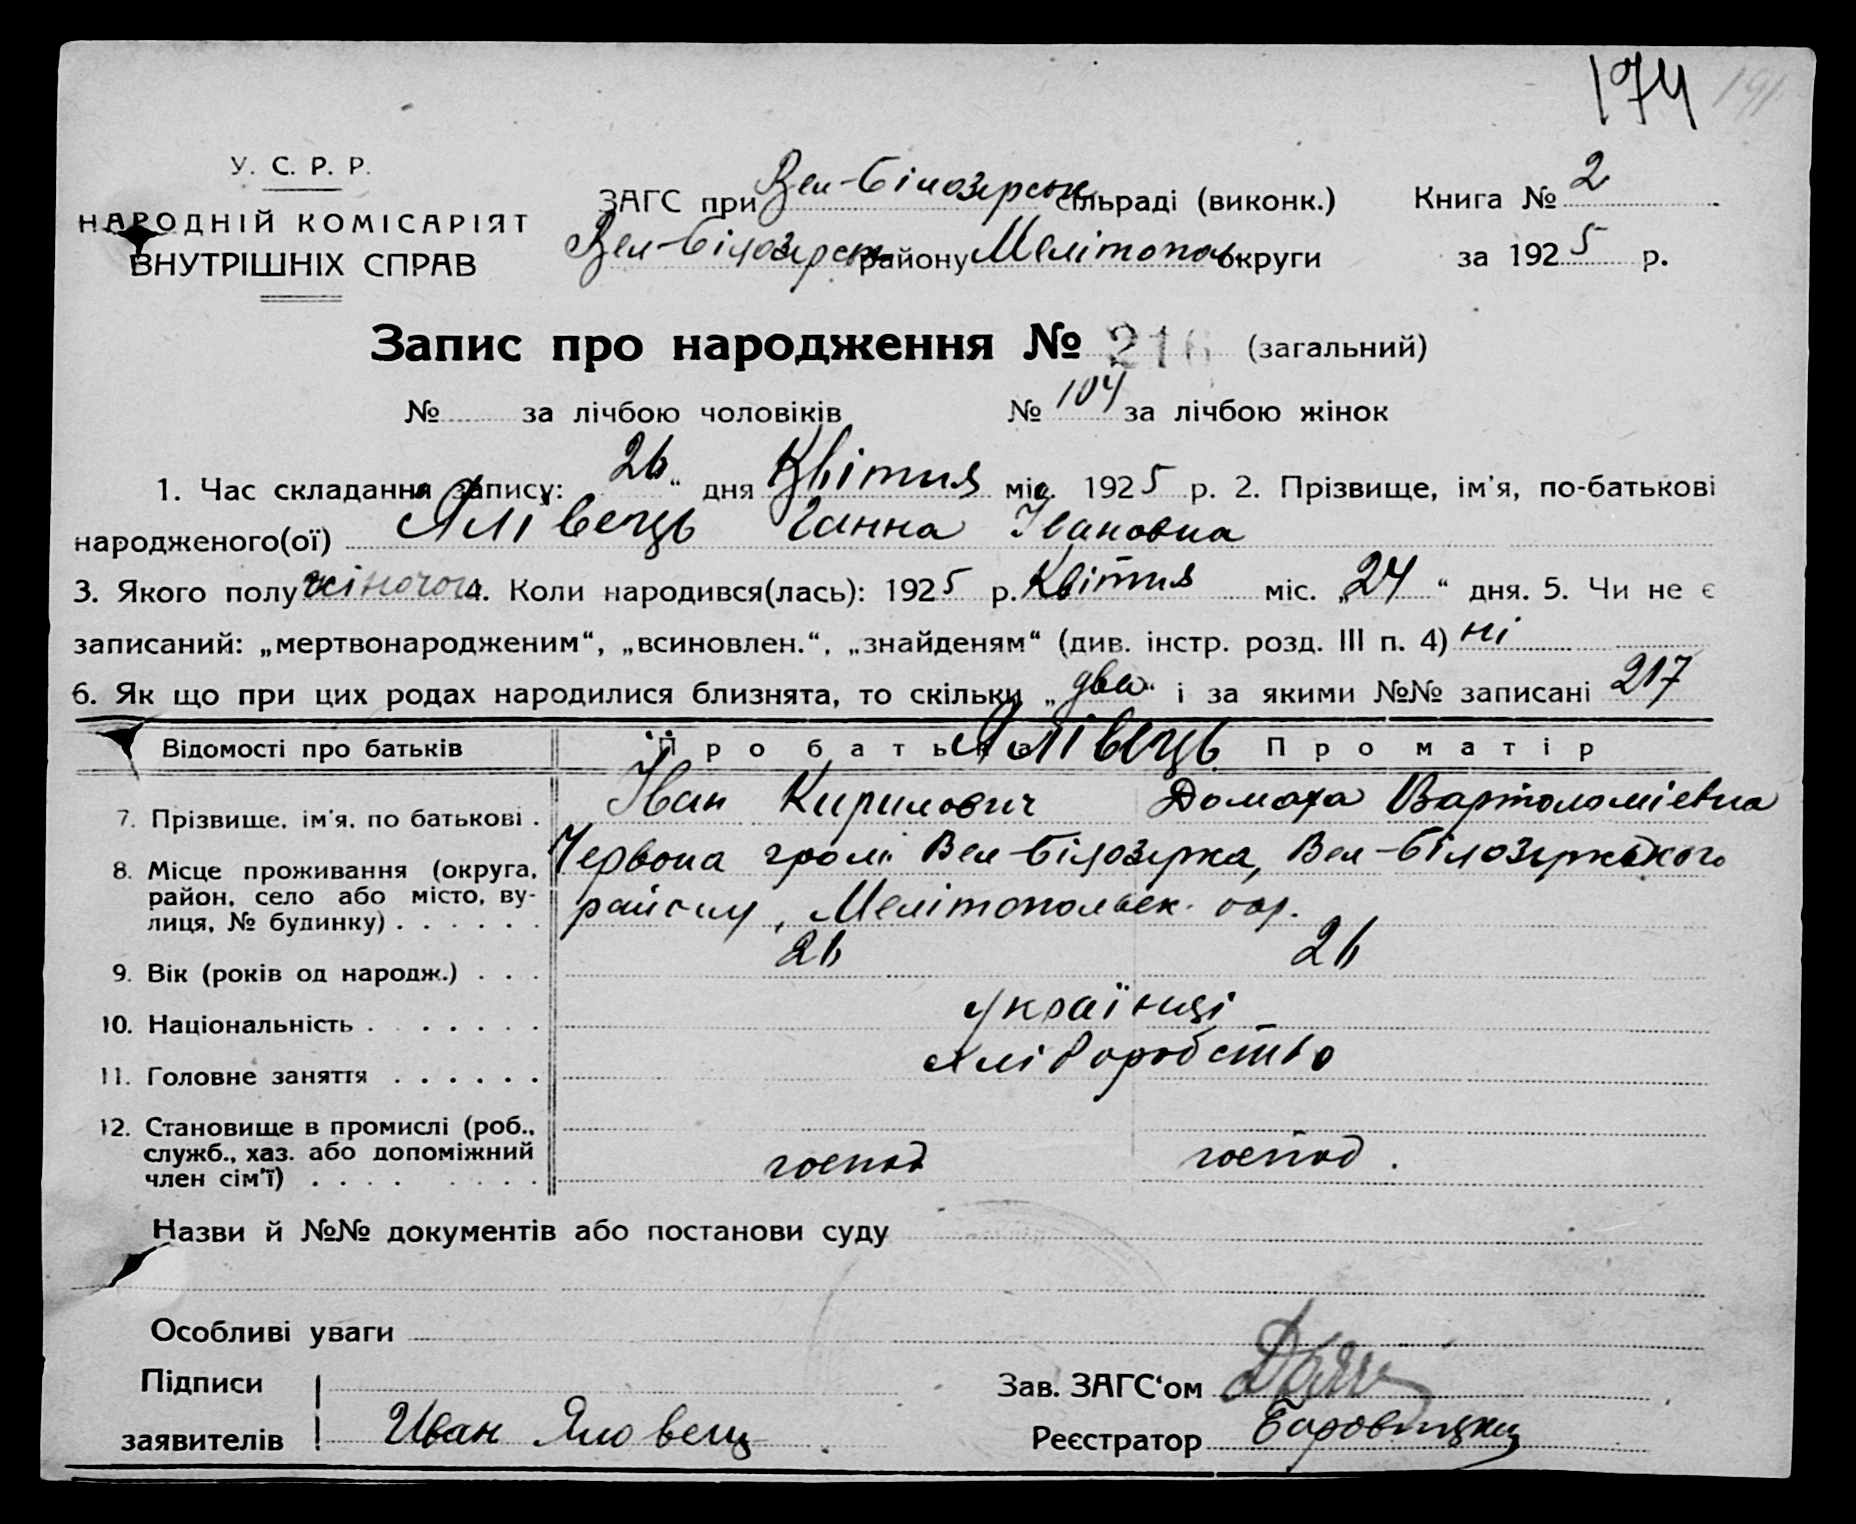 174 191
У. С. Р. Р.
НАРОДНІЙ КОМІСАРІЯТ
ВНУТРІШНІХ СПРАВ
ЗАГС при Вел-Білозерськ сільраді (виконк.) Книга № 2
Вел-Білозерськ району Мелітопол округи за 1925 р.
Запис про народження № 216 (загальний)
№ за лічбою чоловіків № 104 за лічбою жінок
1. Час складання запису: 26 “ дня Квітня міс. 1925 р. 2. Прізвище, ім'я, по-батькові
народженого(ої) Ялівець Ганна Івановна
3. Якого полу жіночого 4. Коли народився(лась): 1925 р. Квітня міс. „24“ дня. 5. Чи не є
записаний: „мертвонародженим“, „всиновлен.“, „знайденям“ (див. інстр. розд. III п. 4) ні
6. Як що при цих родах народилися близнята, то скільки „два“ і за якими №№ записані 217
Відомості про батьків Про батька Ялівець Про матір
7. Прізвище, ім'я, по батькові . Іван Кирилович Домаха Вартоломієвна
8. Місце проживання (округа, Червона гром. Вел-Білозерка, Вел-Білозерського
район, село або місто, ву- району, Мелітопольск. окр.
лиця, № будинку) . . . . . .
9. Вік (років од народж.) . . . 26 26
10. Національність . . . . . . . українці
11. Головне заняття . . . . . . хліборобство
12. Становище в промислі (роб.,
служб., хаз. або допоміжний господ господ.
член сім'ї) . . . . . . . .
Назви й №№ документів або постанови суду
Особливі уваги
Підписи Зав. ЗАГС‘ом
заявителів Иван Яловец Реєстратор